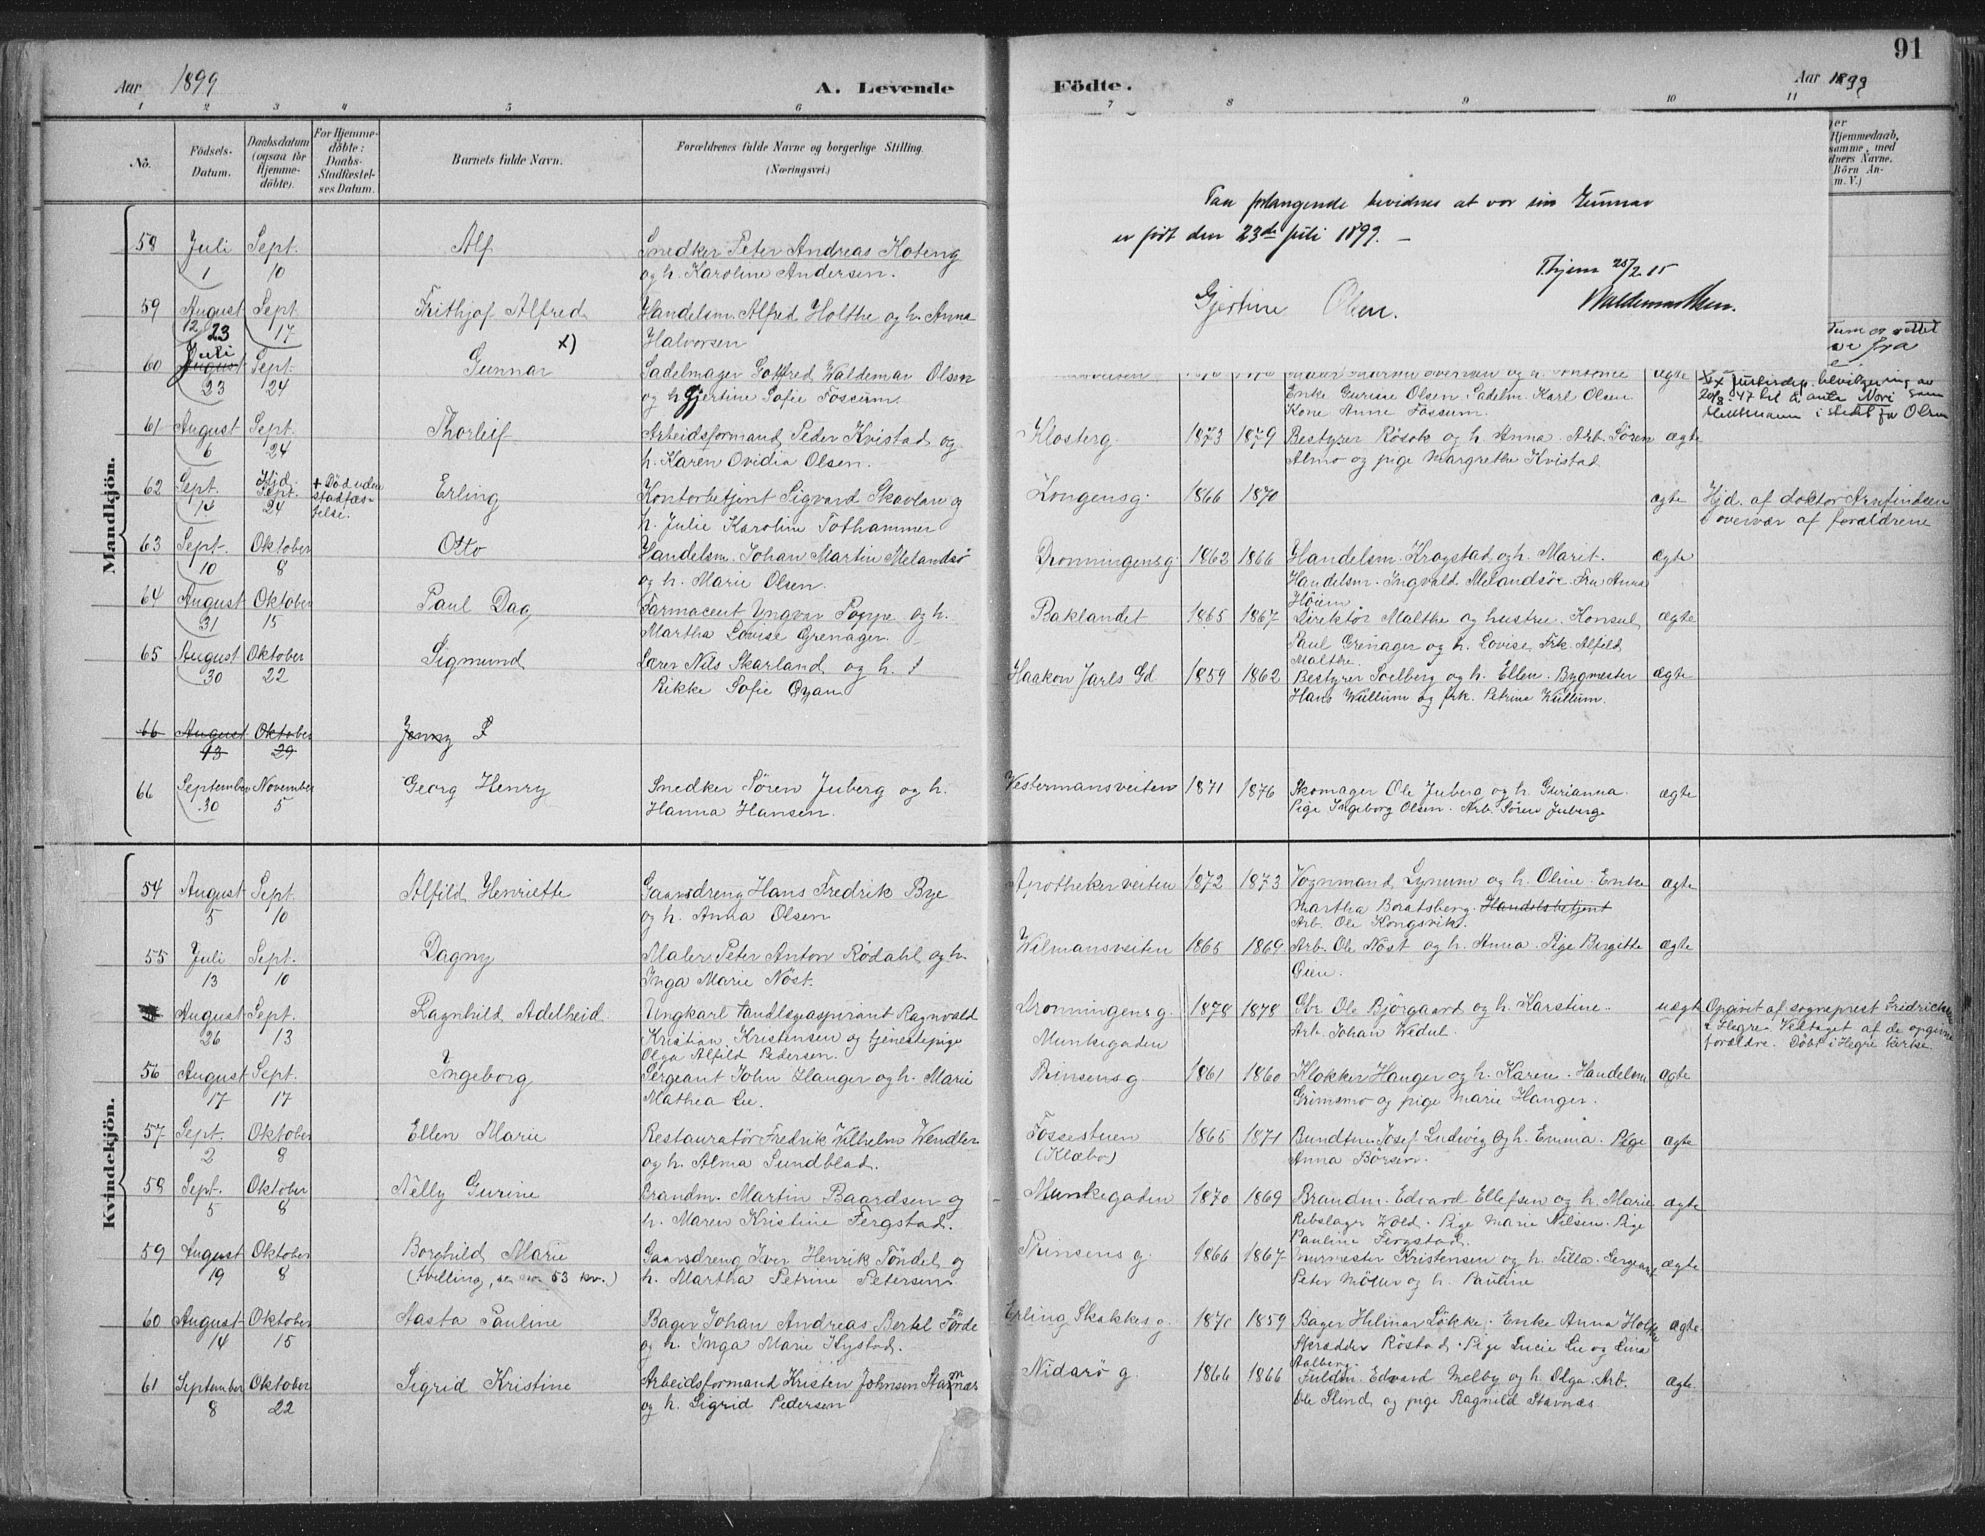 91
Aar 1899
A. Levende
Födte.
Aar 1899
1 2 3 4 5 6 7 8 9 10 11
No.
Födsels-Datum.
Daabsdatum (ogsaa for Hjemme-döbte).
For Hjemme-döbte: Daabs-Stadfæstel-ses Datum.
Barnets fulde Navn.
Forældrenes fulde Navne og borgerlige Stilling.
(Næringsvei.)
Hjemmedaab,
samme, med
dners Navne.
Börn An-
m. V.)
Paa forlangende bevidnes at vor søn Gunnar
er født den 23de juli 1899. –
Thjem 25/2 15
Gjertine Olsen.
Waldemar Olsen.
Mandkjön.
58 Juli 1 Sept. 10 Alf Snedker Peter Andreas Koteng
og h. Karoline Andersen.
59 August 12 Sept. 17 Frithjof Alfred Handelsm. Alfred Holthe og h. Anna
Halvorsen
60 23 Juli August 23 Sept. 24 Gunnar x) Sadelmager Gottfred Waldemar Olsen
og h. Gjertine Sofie Fossum.
ægte
Enke Gurine Olsen. Sadelm. Karl Olsen
Kone Anne Fossum.
61 August 6 Sept. 24 Thorleif Arbeidsformand Peder Kvistad og
h. Karen Ovidia Olsen.
Klosterg. 1873 1879 Bestyrer Rösok og h. Anna. Arb. Sören
Almo og pige Margrethe Kvistad
ægte
62 Sept. 14 Hjd. Sept. 24 + Död uden stadfæs-telse. Erling Kontorbetjent Sigvard Skavlan og
h. Julie Karoline Tothammer
Kongensg. 1866 1870 ægte Hjd. af doktor Arnfindsen
i overvær af forældrene
63 Sept. 10 Oktober 8 Otto Handelsm. Johan Martin Melandsö
og h. Marie Olsen.
Dronningensg. 1862 1866 Handelsm. Kragstad og h. Marit.
Handelsm. Ingvald Melandsöe. Fru Anna
Höiem.
ægte
64 August 31 Oktober 15 Paul Dag Farmaceut Yngvar Poppe og h.
Martha Lovise Grenager.
Baklandet 1865 1867 Direktör Malthe og hustru. Konsul
Paul Grenager og h. Lovise. Frk. Alfild
Malthe.
ægte
65 August 30 Oktober 22 Sigmund Lærer Nils Skarland og h.
Rikke Sofie Gyan
Haakon Jarls Gd 1859 1862 Bestyrer Soelberg og h. Ellen. Bygmester
Hans Wullum og frk. Petrine Wullum.
ægte
66 August 13 Oktober 29 Jenny
66 September 30 November 5 Georg Henry Snedker Sören Juberg og h.
Hanna Hansen.
Vestermansveiten 1871 1876 Skomager Ole Juberg og h. Gurianna.
Pige Ingeborg Olsen. Arb. Sören Juberg.
ægte
Kvindekjön.
54 August 5 Sept. 10 Alfild Henriette Gaardsdreng Hans Fredrik Bye
og h. Anna Olsen
Apothekerveiten 1872 1873 Vognmand Lynum og h. Oline. Enke
Martha Boratsberg. Handelsbetjent
Arb. Ole Kongsvik.
ægte
55 Juli 13 Sept. 10 Dagny Maler Peter Anton Rödahl og h.
Inga Marie Nöst.
Wilmansveiten 1865 1869 Arb. Ole Nöst og h. Anna. Pige Birgitte
Öien.
ægte
August 26 Sept. 13 Ragnhild Adelheid Ungkarl tandlægeaspirant Ragnvald
Kristian Kristensen og tjenestepige
Olga Alfild Pedersen.
Dronningensg.
Munkegaden
1878 1878 Gbr. Ole Björgaard og h. Karstine.
Arb. Johan Wedul.
uægte Opgivet af sogneprest Fredrichsen
i Hegre. Vedtaget af de opgivne
forældre. Döbt i Hegre kirke
56 August 17 Sept. 17 Ingeborg Sergeant John Hanger og h. Marie
Mathea Lie.
Prinsensg 1861 1860 Klokker Hanger og h. Karen. Handelsm
Grimsmo og pige Marie Hanger.
ægte
57 Sept. 2 Oktober 8 Ellen Marie Restauratör Fredrik Vilhelm Wendler
og h. Alma Sundblad.
Fossestuen
(Klæbo)
1865 1871 Bundtm. Josef Ludwig og h. Emma. Pige
Anna Börsen.
ægte
58 Sept. 5 Oktober 8 Nelly Gurine Brandm. Martin Baardsen og
h. Maren Kristine Fergstad.
Munkegaden 1870 1869 Brandm. Edvard Ellefsen og h. Marie
Rebslager Wold. Pige Marie Nilsen. Pige
Pauline Fergstad.
ægte
59 August 19 Oktober 8 Borghild Marie
(tvilling, se 53 kv.)
Gaardsdreng Iver Henrik Töndel og
h. Martha Petrine Petersen
Prinsensg. 1866 1867 Murmester Kristensen og h. Tilla. Sergeant
Peter Möller og h. Pauline
ægte
60 August 14 Oktober 15 Aasta Pauline Bager Johan Andreas Bertel Förde
og h. Inga Marie Hystad.
Erling Skakkes g. 1870 1859 Bager Hilmar Lökke. Enke Anna Holthe
Skrædder Röstad. Pige Lucie Lie og Lina
Aalberg.
ægte
61 September 8 Oktober 22 Sigrid Kristine Arbeidsformand Kristen Johnsen Stamnæs
og h. Sigrid Pedersen
Nidarög. 1866 1866 Fuldm. Edvard Melby og h. Olga. Arb.
Ole Slind og pige Ragnild Stavnæs
ægte